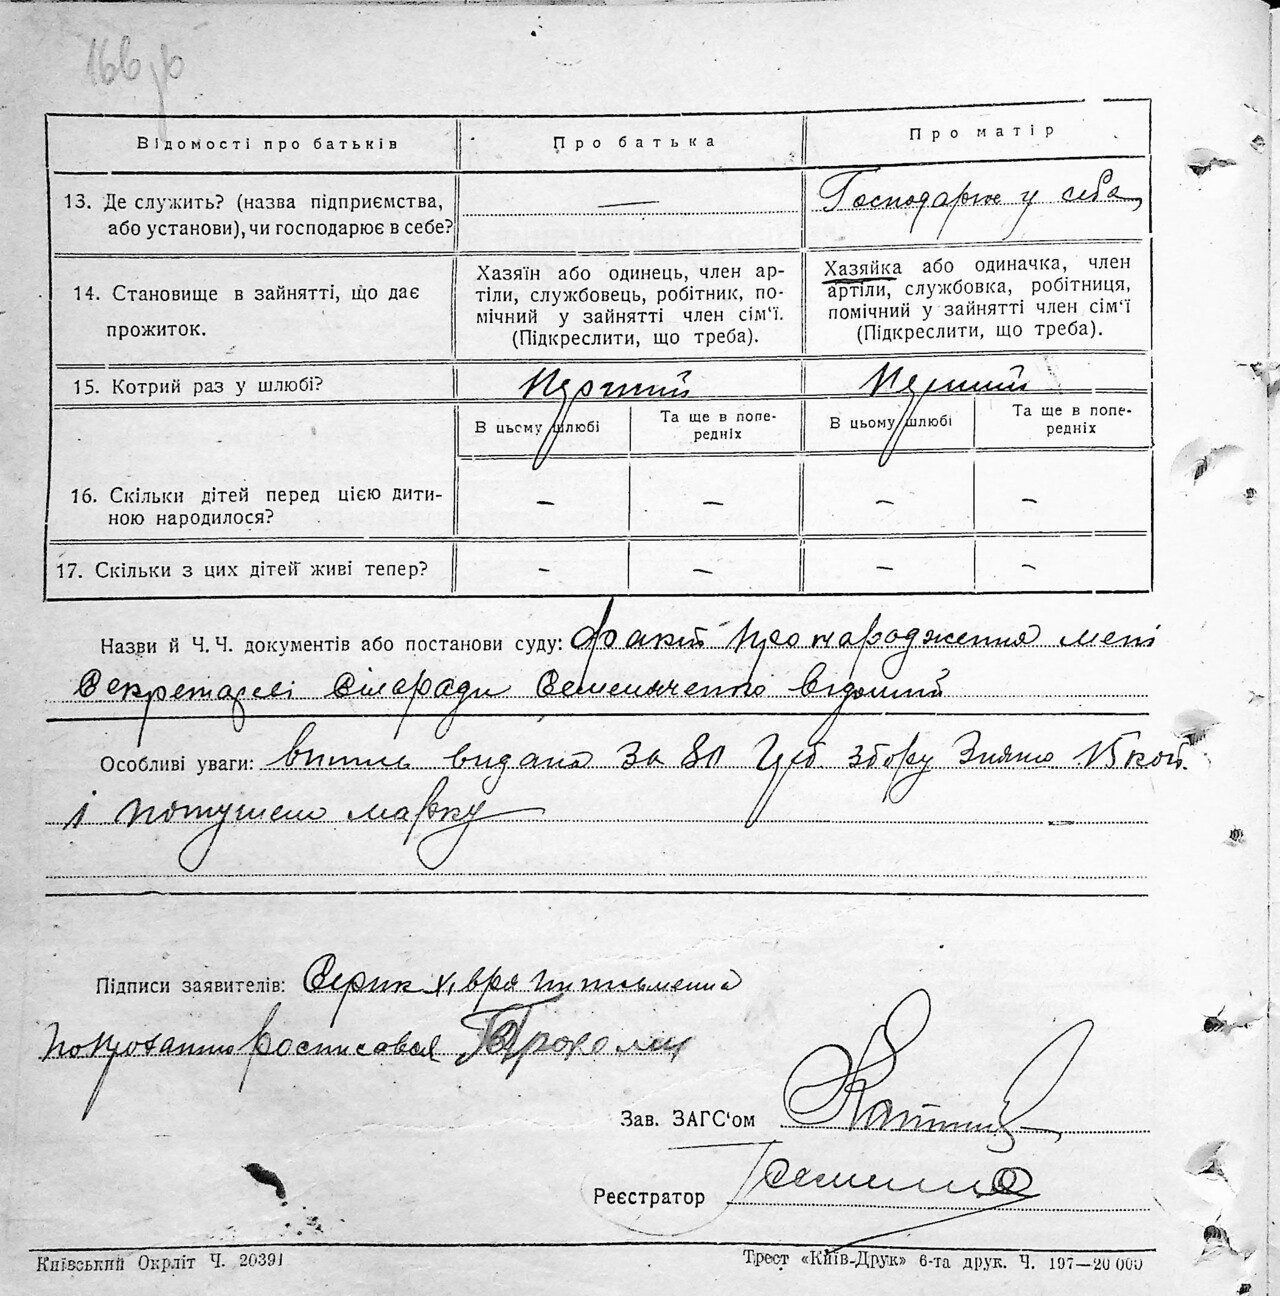 Відомості про батьків
Про батька
Про матір
13. Де служить? (назва підприємства,
або установи), чи господарює в себе?
—
Господарює у себе
14. Становище в зайнятті, що дає
прожиток.
Хазяїн або одинець, член ар-
тіли, службовець, робітник, по-
мічний у зайнятті член сім'ї.
(Підкреслити, що треба).
Хазяйка або одиначка, член
артіли, службовка, робітниця,
помічний у зайнятті член сім'ї
(Підкреслити, що треба).
15. Котрий раз у шлюбі?
Перший
Перший
В цьому шлюбі
Та ще в попе-
редніх
В цьому шлюбі
Та ще в попе-
редніх
16. Скільки дітей перед цією дити-
ною народилося?
— — — —
17. Скільки з цих дітей живі тепер?
— — — —
Назви й Ч. Ч. документів або постанови суду: факт про народження мені
Секретареві Сільради відомий
Особливі уваги: видана За збору Знято 15 коп.
і марку
Підписи заявителів:
росписався
Зав. ЗАГС'ом
Реєстратор
Київський Окрліт Ч. 20391
Трест «Київ-Друк» 6-та друк. Ч. 197—20 000